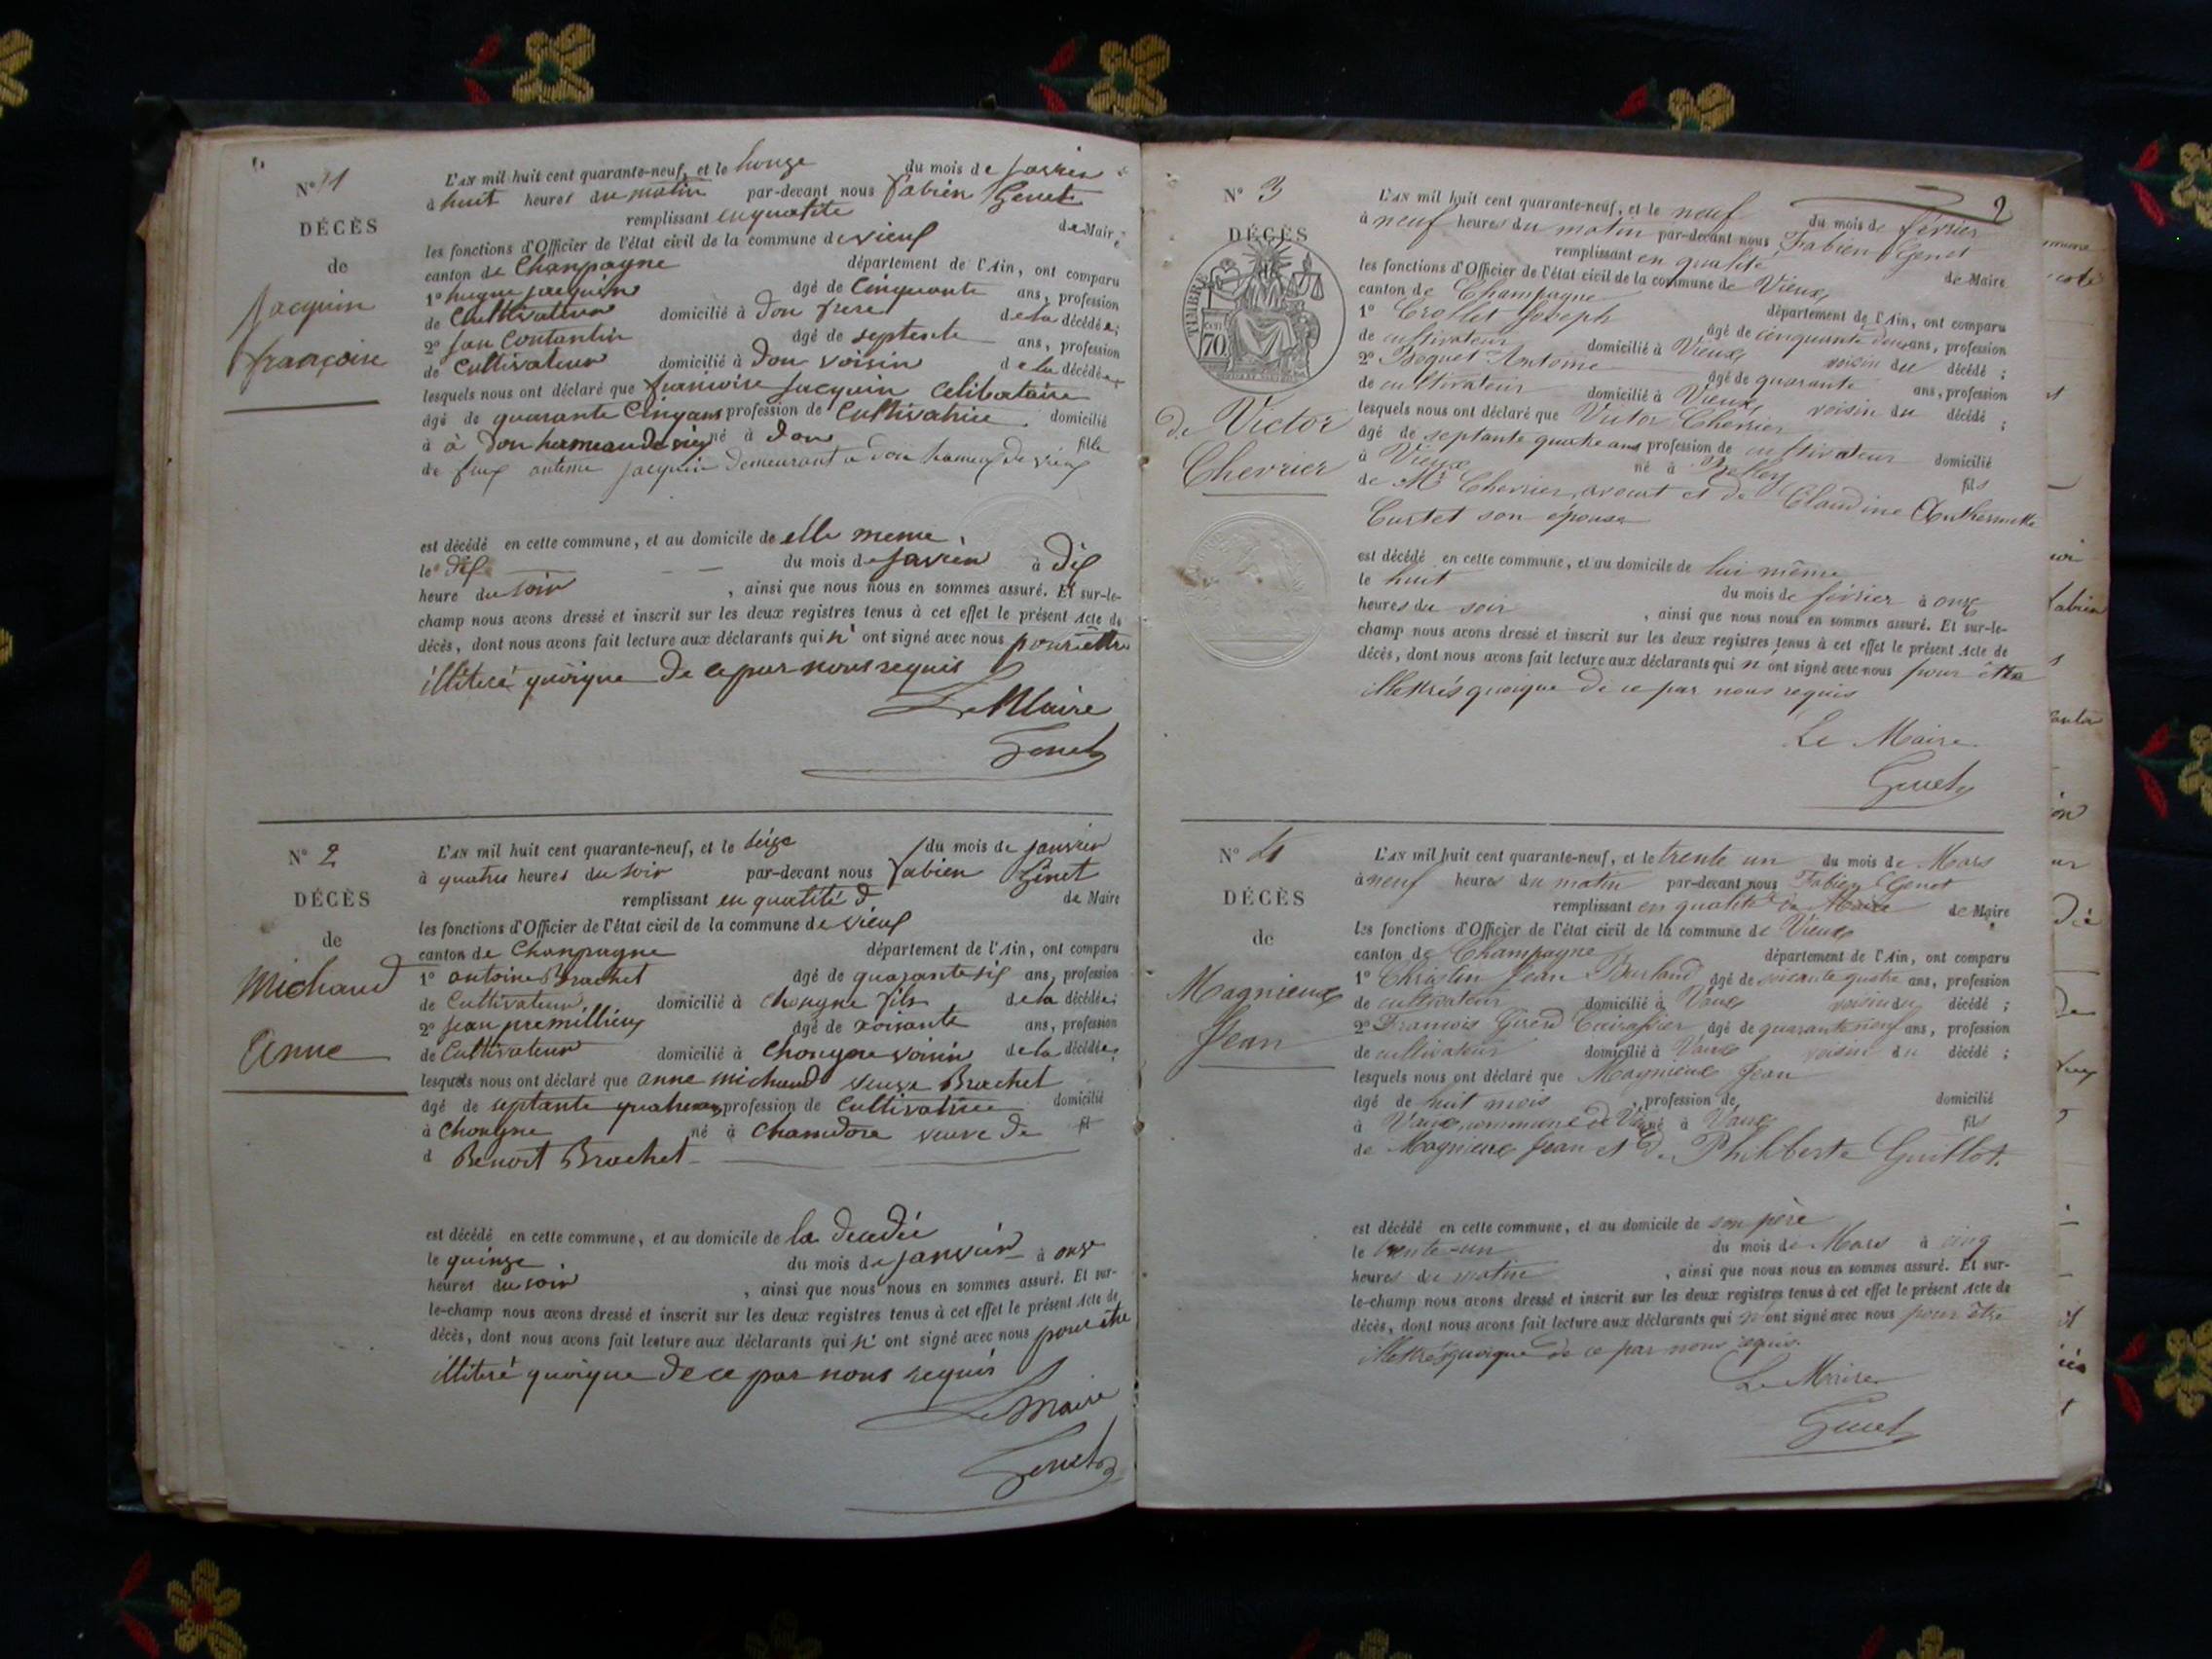 N° 1
DÉCÈS
de
Jacquin
françoise
L'AN mil huit cent quarante-neuf, et le honze du mois de Janvier
à huit heures du matin par-devant nous fabien Genet
remplissant en quatité de Maire
les fonctions d'Officier de l'état civil de la commune de vieux
canton de Chanpagne département de l'Ain, ont comparu
1° hugue jacquin âgé de Cinquante ans, profession
de Cultivateur domicilié à don frere de la décédée;
2° jean Contantin âgé de septente ans, profession
de Cultivateur domicilié à don voisin de la décédée
lesquels nous ont déclaré que francoise Jacquin Celibataire
âgé de quarante Cinq ans profession de Cultivatrice domicilié
à à don hameau de vieux né à don fille
de feux antime jacquin demeurant a don hameux de vieux
est décédé en cette commune, et au domicile de elle meme
le dix du mois de janvier à dix
heure du soir , ainsi que nous nous en sommes assuré. Et sur-le-
champ nous avons dressé et inscrit sur les deux registres tenus à cet effet le présent Acte de
décès, dont nous avons fait lecture aux déclarants qui n' ont signé avec nous pour être
illiteré quoique de ce par nous requis
Le Maire
Genet
N° 2
DÉCÈS
de
Michaud
Anne
L'AN mil huit cent quarante-neuf, et le seize du mois de janvier
à quatres heures du soir par-devant nous fabien Genet
remplissant en quatité d de Maire
les fonctions d'Officier de l'état civil de la commune de vieux
canton de Chanpagne département de l'Ain, ont comparu
1° antoine Brachet âgé de quarante six ans, profession
de Cultivateur domicilié à chongne fils de la décédée;
2° jean premillieux âgé de soisante ans, profession
de Cultivateur domicilié à chongne voisin de la décédée;
lesquels nous ont déclaré que anne michaud veuve Brachet
âgé de septante quatre ans profession de Cultivatrice domicilié
à chongne né à chamdore veuve de fil
d Benoit Brachet
est décédé en cette commune, et au domicile de la décédée
le quinze du mois de janvier à onze
heures du soir , ainsi que nous nous en sommes assuré. Et sur-
le-champ nous avons dressé et inscrit sur les deux registres tenus à cet effet le présent Acte de
décès, dont nous avons fait lecture aux déclarants qui n' ont signé avec nous pour être
illiteré quoique de ce par nous requis
Le maire
Genet
2
N° 3
DÉCÈS
de
TIMBRE
70
de Victor
Chevrier
L'AN mil huit cent quarante-neuf, et le neuf du mois de février
à neuf heures du matin par-devant nous Fabien Genet
remplissant en qualité de Maire
les fonctions d'Officier de l'état civil de la commune de Vieux
canton de Champagne département de l'Ain, ont comparu
1° Crollet Joseph âgé de cinquante deux ans, profession
de cultivateur domicilié à Vieux voisin du décédé ;
2° Boquet Antoine âgé de quarante ans, profession
de cultivateur domicilié à Vieux voisin du décédé ;
lesquels nous ont déclaré que Victor Chevrier
âgé de septante quatre ans profession de cultivateur domicilié
à Vieux né à Belley fils
de Mr Chevrier avocat et de Claudine Anthermette
Curtet son épouse
est décédé en cette commune, et au domicile de lui même
le huit du mois de février à onze
heures du soir , ainsi que nous nous en sommes assuré. Et sur-le-
champ nous avons dressé et inscrit sur les deux registres tenus à cet effet le présent Acte de
décès, dont nous avons fait lecture aux déclarants qui n' ont signé avec nous pour être
illettrés quoique de ce par nous requis
Le Maire
Genet
N° 4
DÉCÈS
de
Magnieux
Jean
L'AN mil huit cent quarante-neuf, et le trente un du mois de Mars
à neuf heures du matin par-devant nous Fabien Genet
remplissant en qualité de Maire de Maire
les fonctions d'Officier de l'état civil de la commune de Vieux
canton de Champagne département de l'Ain, ont comparu
1° Christin Jean Burland âgé de soixante quatre ans, profession
de cultivateur domicilié à Vaux voisin du décédé ;
2° Francois Girerd âgé de quarante neuf ans, profession
de cultivateur domicilié à Vaux voisin du décédé ;
lesquels nous ont déclaré que Magnieux Jean
âgé de huit mois , profession de domicilié
à Vaux commune de né à Vaux fils
de Magnieux Jean et de Philiberte Guillot.
est décédé en cette commune, et au domicile de son père
le trente-un du mois de Mars à cinq
heures du matin , ainsi que nous nous en sommes assuré. Et sur-
le-champ nous avons dressé et inscrit sur les deux registres tenus à cet effet le présent Acte de
décès, dont nous avons fait lecture aux déclarants qui n' ont signé avec nous pour être
illettrés quoique de ce par nous requis.
Le Maire
Genet